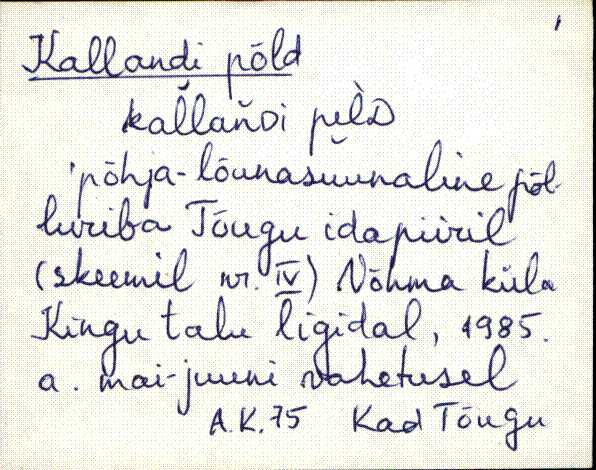 Kallandi põld
kallaǹDi pèl̀D
'põhja-lõunasuunaline põl-
luriba Tõugu idapiiril
(skeemil nr. IV) Võhma küla
Kingu talu ligidal, 1985.
a. mai-juuni vahetusel
A.K. 75 Kad Tõugu